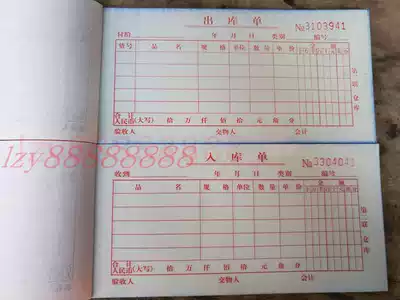 出库单
№3103941
年 月 日 类别 编号
货号 品名 规格 单位 数量 单价 金额
合计
人民币(大写) 拾 万 仟 佰 拾 元 角 分
验收人 交物人 会计
lzy88888888
入库单
№3304043
收到 年 月 日 类别 编号
品名 规格 单位 数量 单价 金额
合计
人民币(大写) 拾 万 仟 佰 拾 元 角 分
验收人 交物人 会计